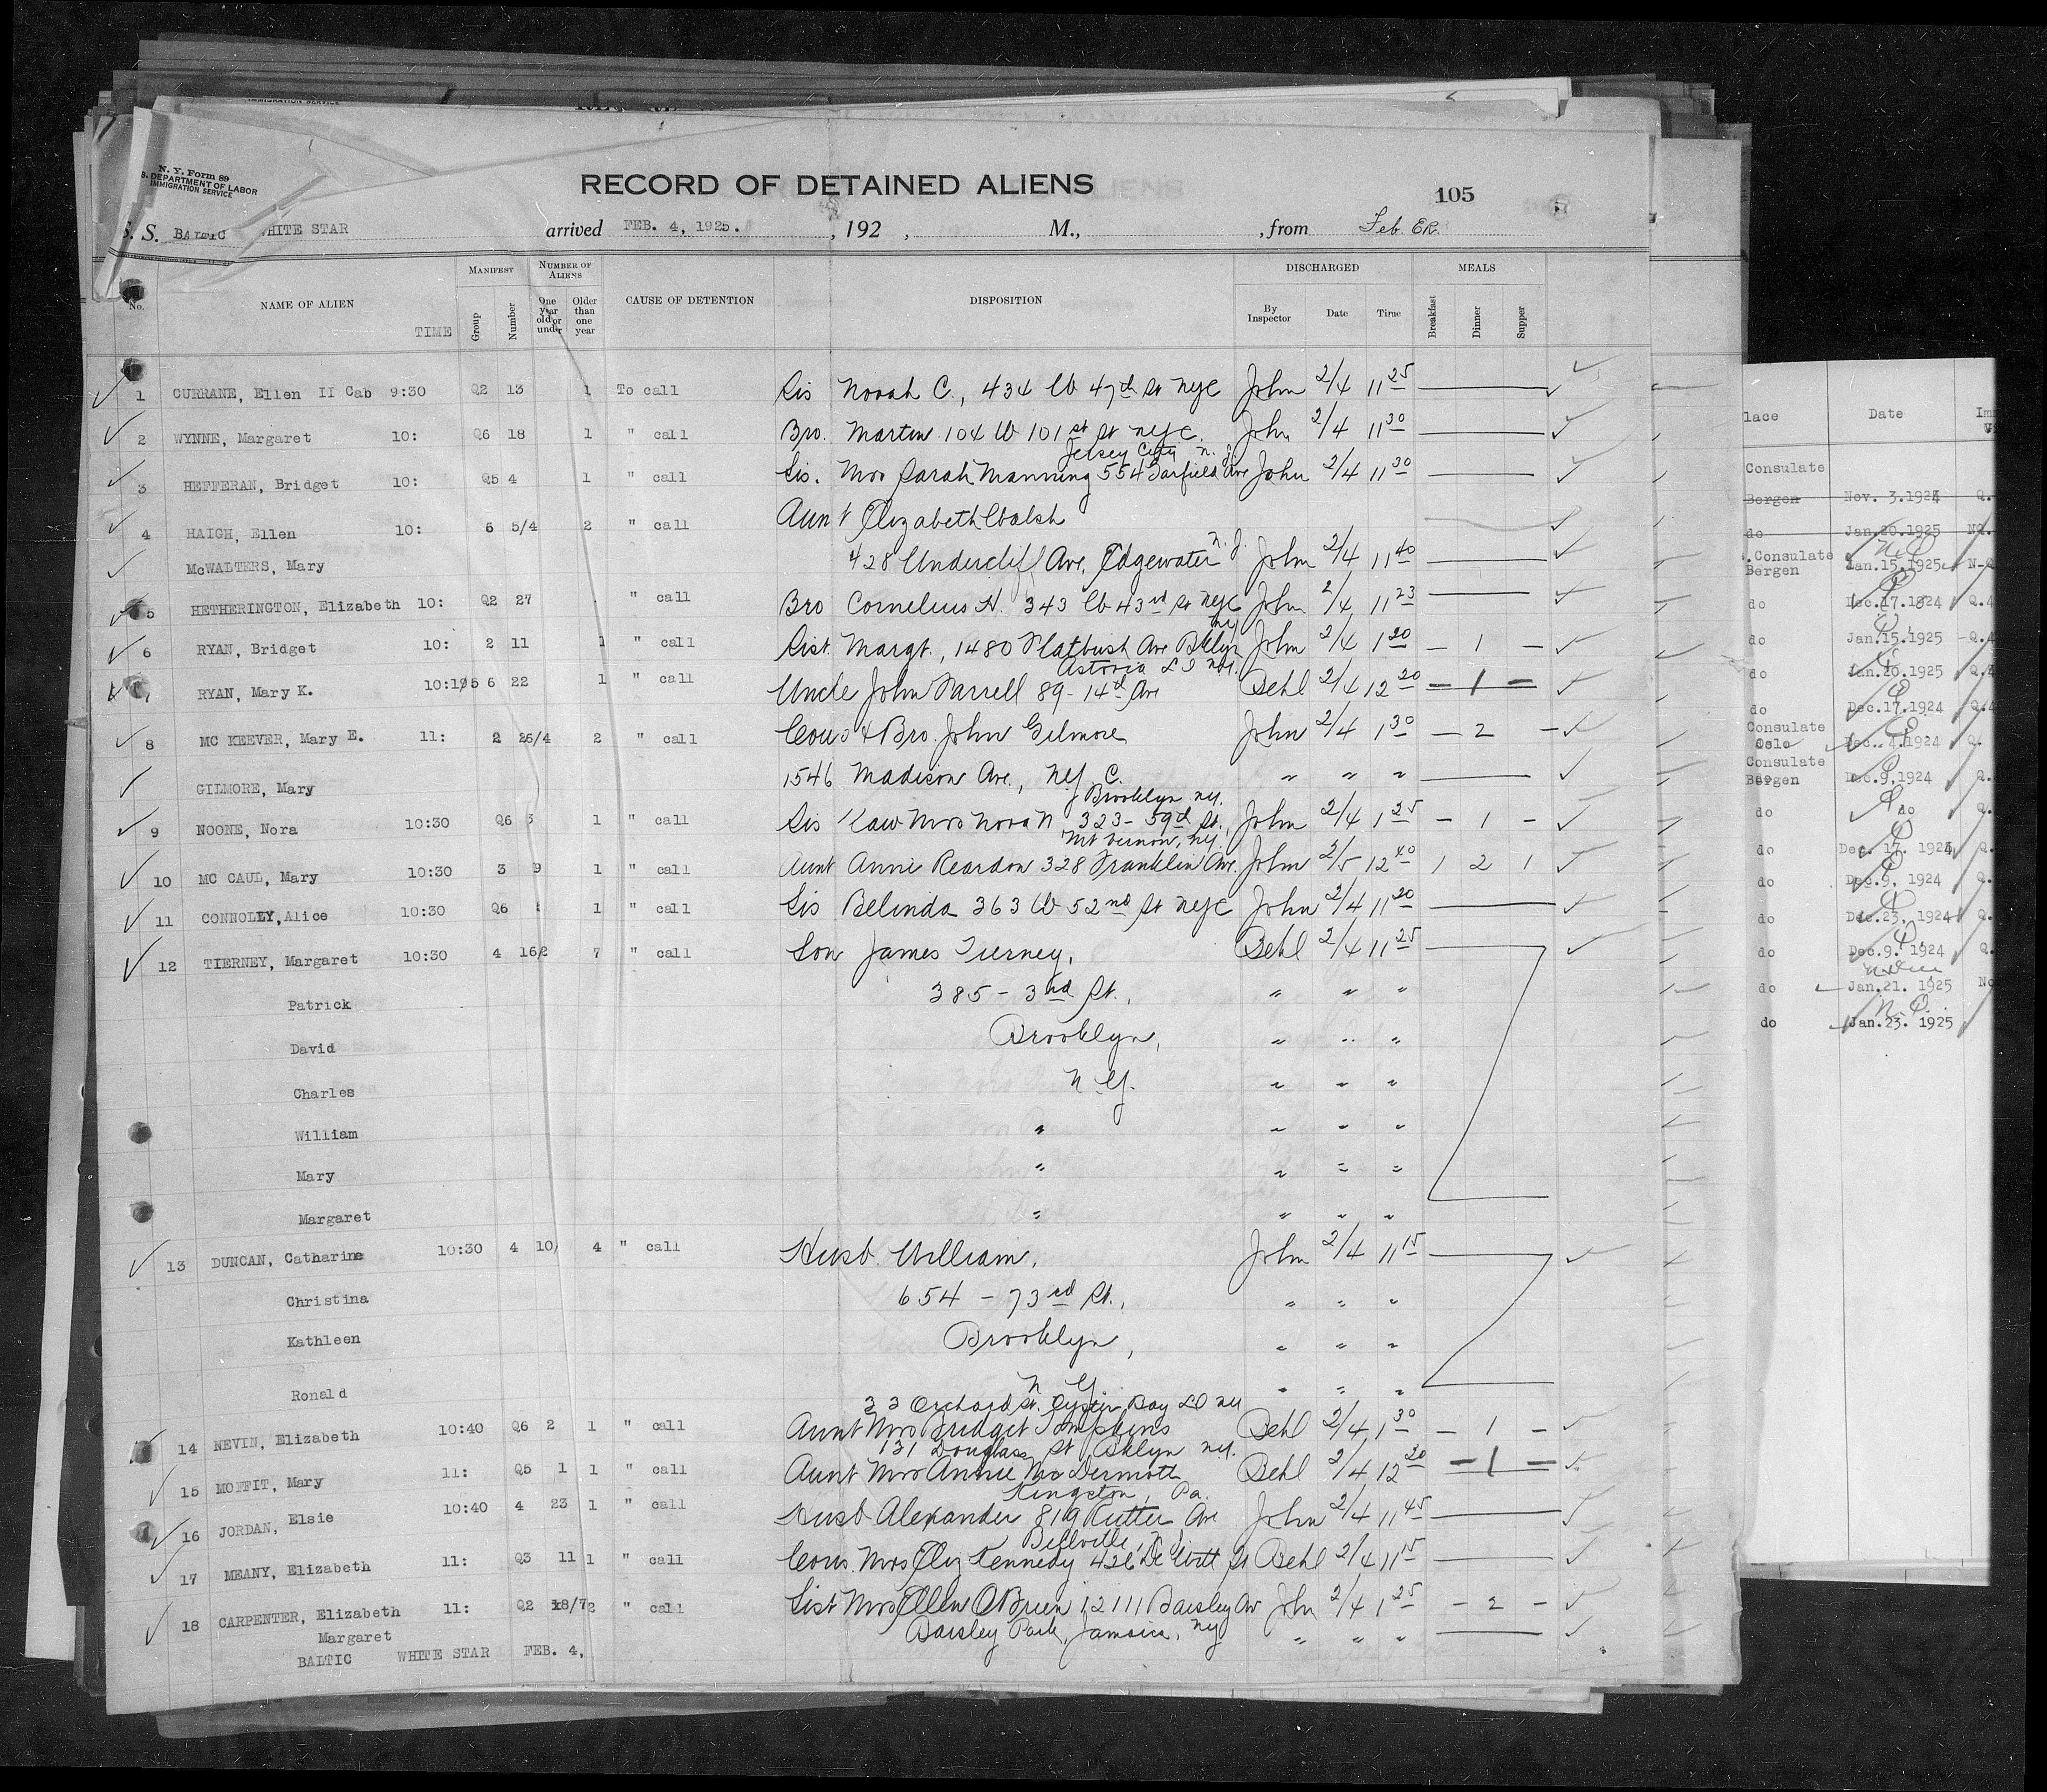 N. Y. Form 89
S. DEPARTMENT OF LABOR
IMMIGRATION SERVICE
RECORD OF DETAINED ALIENS
105
S. S. BALTIC WHITE STAR arrived FEB. 4, 1925. , 192 , M., , from Feb. ER.
No. NAME OF ALIEN TIME MANIFEST Group Number NUMBER OF ALIENS One year old or under Older than one year CAUSE OF DETENTION DISPOSITION DISCHARGED By Inspector Date Time MEALS Breakfast Dinner Supper
1 CURRANE, Ellen II Cab 9:30 Q2 13 1 To call Sis Norah C., 434 W 47th St NYC John 2/4 11 25
2 WYNNE, Margaret 10: Q6 18 1 " call Bro. Martin 104 W 101st St NYC. John 2/4 11 30
Jersey City N. J.
3 HEFFERAN, Bridget 10: Q5 4 1 " call Sis. Mrs Sarah Manning 554 Garfield Ave John 2/4 11 30
4 HAIGH, Ellen 10: 6 5/4 2 " call Aunt Elizabeth Walsh
McWALTERS, Mary 428 Undercliff Ave, Edgewater N. J. John 2/4 11 40
5 HETHERINGTON, Elizabeth 10: Q2 27 " call Bro Cornelius H. 343 W 43rd St NYC John 2/4 11 23
6 RYAN, Bridget 10: 2 11 1 " call Sist. Margt., 1480 Flatbush Ave Bklyn NY John 2/4 1 20 - 1 -
Astoria L I NY.
7 RYAN, Mary K. 6 22 1 " call Uncle John Farrell 89-14th Ave Behl 2/4 12 20 - 1 -
8 MC KEEVER, Mary E. 11: 2 26/4 2 " call Cous & Bro. John Gilmore John 2/4 1 30 - 2 -
GILMORE, Mary 1546 Madison Ave., NY C. " " "
Brooklyn NY.
9 NOONE, Nora 10:30 Q6 3 1 " call Sis Law Mrs Nora N 323-59th St., John 2/4 1 25 - 1 -
Mt Vernon, NY.
10 MC CAUL, Mary 10:30 3 9 1 " call Aunt Annie Reardon 328 Franklin Ave. John 2/5 12 40 1 2 1
11 CONNOLLY, Alice 10:30 Q6 1 " call Sis Belinda 363 W 52nd St NYC John 2/4 11 20
12 TIERNEY, Margaret 10:30 4 16/2 7 " call Son James Tierney, Behl 2/4 11 25
Patrick 385-3rd St., " " "
David Brooklyn, " " "
Charles N.Y. " " "
William " " " "
Mary " " " "
Margaret " " " "
13 DUNCAN, Catharine 10:30 4 10/ 4 " call Husb. William, John 2/4 11 15
Christina 654 - 73rd St., " " "
Kathleen Brooklyn, " " "
Ronald N Y. " " "
33 Orchard St. Oyster Bay LI NY
14 NEVIN, Elizabeth 10:40 Q6 2 1 " call Aunt Mrs Bridget Tompkins Behl 2/4 1 30 - 1 -
131 Douglass St Bklyn NY.
15 MOFFIT, Mary 11: Q5 1 1 " call Aunt Mrs Annie McDermott Behl 2/4 12 20 - 1 -
Kingston, Pa.
16 JORDAN, Elsie 10:40 4 23 1 " call Husb Alexander 819 Rutter Ave John 2/4 11 45
Bellville, N J
17 MEANY, Elizabeth 11: Q3 11 1 " call Cous. Mrs Eliz Kennedy 426 De Witt St Behl 2/4 11 15
18 CARPENTER, Elizabeth 11: Q2 18/7 2 " call Sist Mrs Ellen O'Brien 12111 Baisley Av John 2/4 1 25 - 2 -
Margaret Baisley Park, Jamaica, NY " " "
BALTIC WHITE STAR FEB. 4,
lace Date
Consulate
Bergen Nov. 3.1924 Q.
do Jan.20.1925 NQ.
.Consulate
Bergen Jan.15.1925 N-Q
do Dec.17.1924 Q.4
do Jan.15.1925 Q.4
do Jan.20.1925 Q.3
do Dec.17.1924 Q.4
Consulate
Oslo Dec. 4.1924 Q.
Consulate
Bergen Dec.9.1924 Q.
do do Q.
do Dec. 17. 1924 Q.
do Dec.9. 1924 Q.
do Dec.23. 1924 Q.
do Dec.9. 1924 Q.
do Jan.21. 1925 No
do Jan.23. 1925